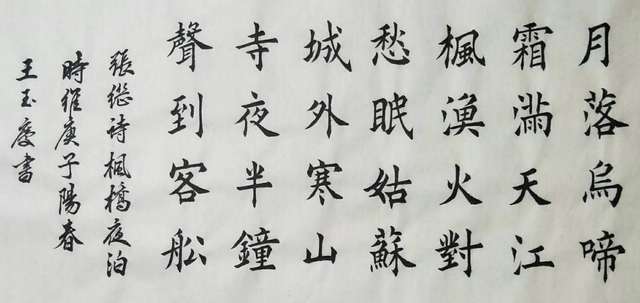 月落烏啼
霜滿天江
楓漁火對
愁眠姑蘇
城外寒山
寺夜半鐘
聲到客船
張继诗楓橋夜泊
時維庚子陽春
王玉慶書